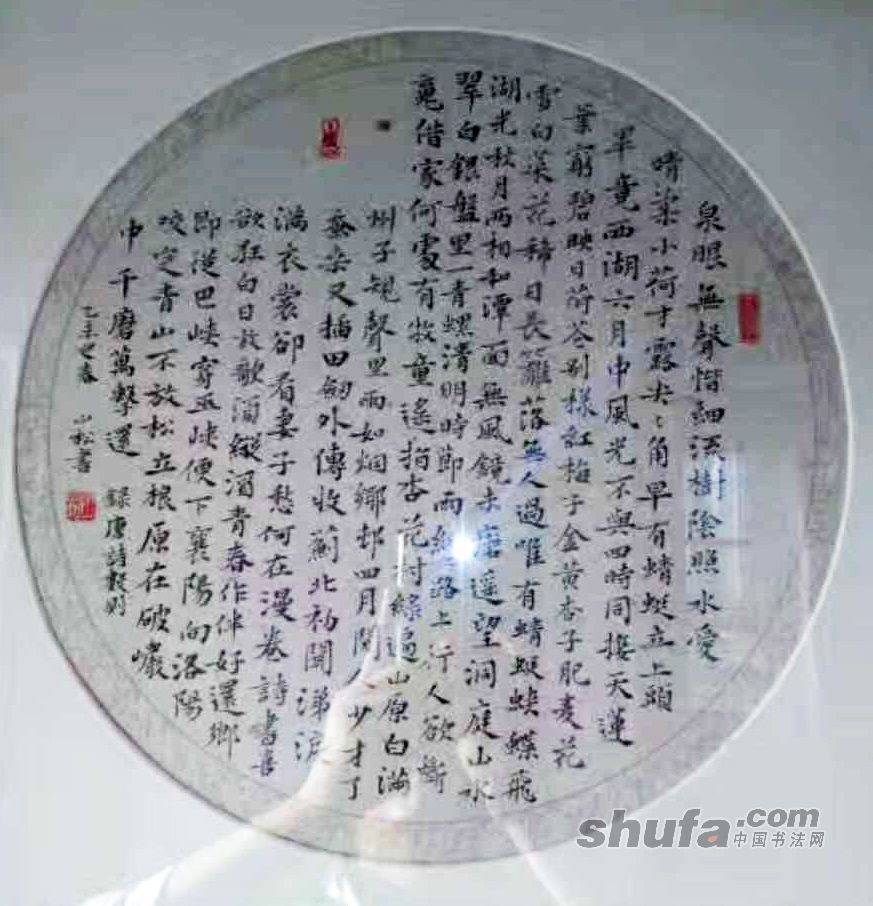 泉眼無聲惜細流樹陰照水愛
晴柔小荷才露尖〻角早有蜻蜓立上頭
畢竟西湖六月中風光不與四時同接天蓮
葉窮碧映日荷花別樣紅梅子金黃杏子肥麦花
雪白菜花稀日長籬落無人過唯有蜻蜓蛺蝶飛
湖光秋月兩相和潭面無風鏡未磨遥望洞庭山水
翠白銀盤里一青螺清明時節雨紛〻路上行人欲斷
魂借家何處有牧童遙指杏花村綠遍山原白滿
州子規聲里雨如烟鄉邨四月閒人少才了
蚕桑又插田劒外傳收薊北初聞涕淚
滿衣裳卻看妻子愁何在漫卷詩書喜
欲狂白日放歌須縱酒青春作伴好還鄉
即從巴峽穿巫峽便下襄陽向洛陽
咬定青山不放松立根原在破巖
中千磨萬擊還 録唐詩數則
乙未之春 山松書
shufa.com
中国书法网